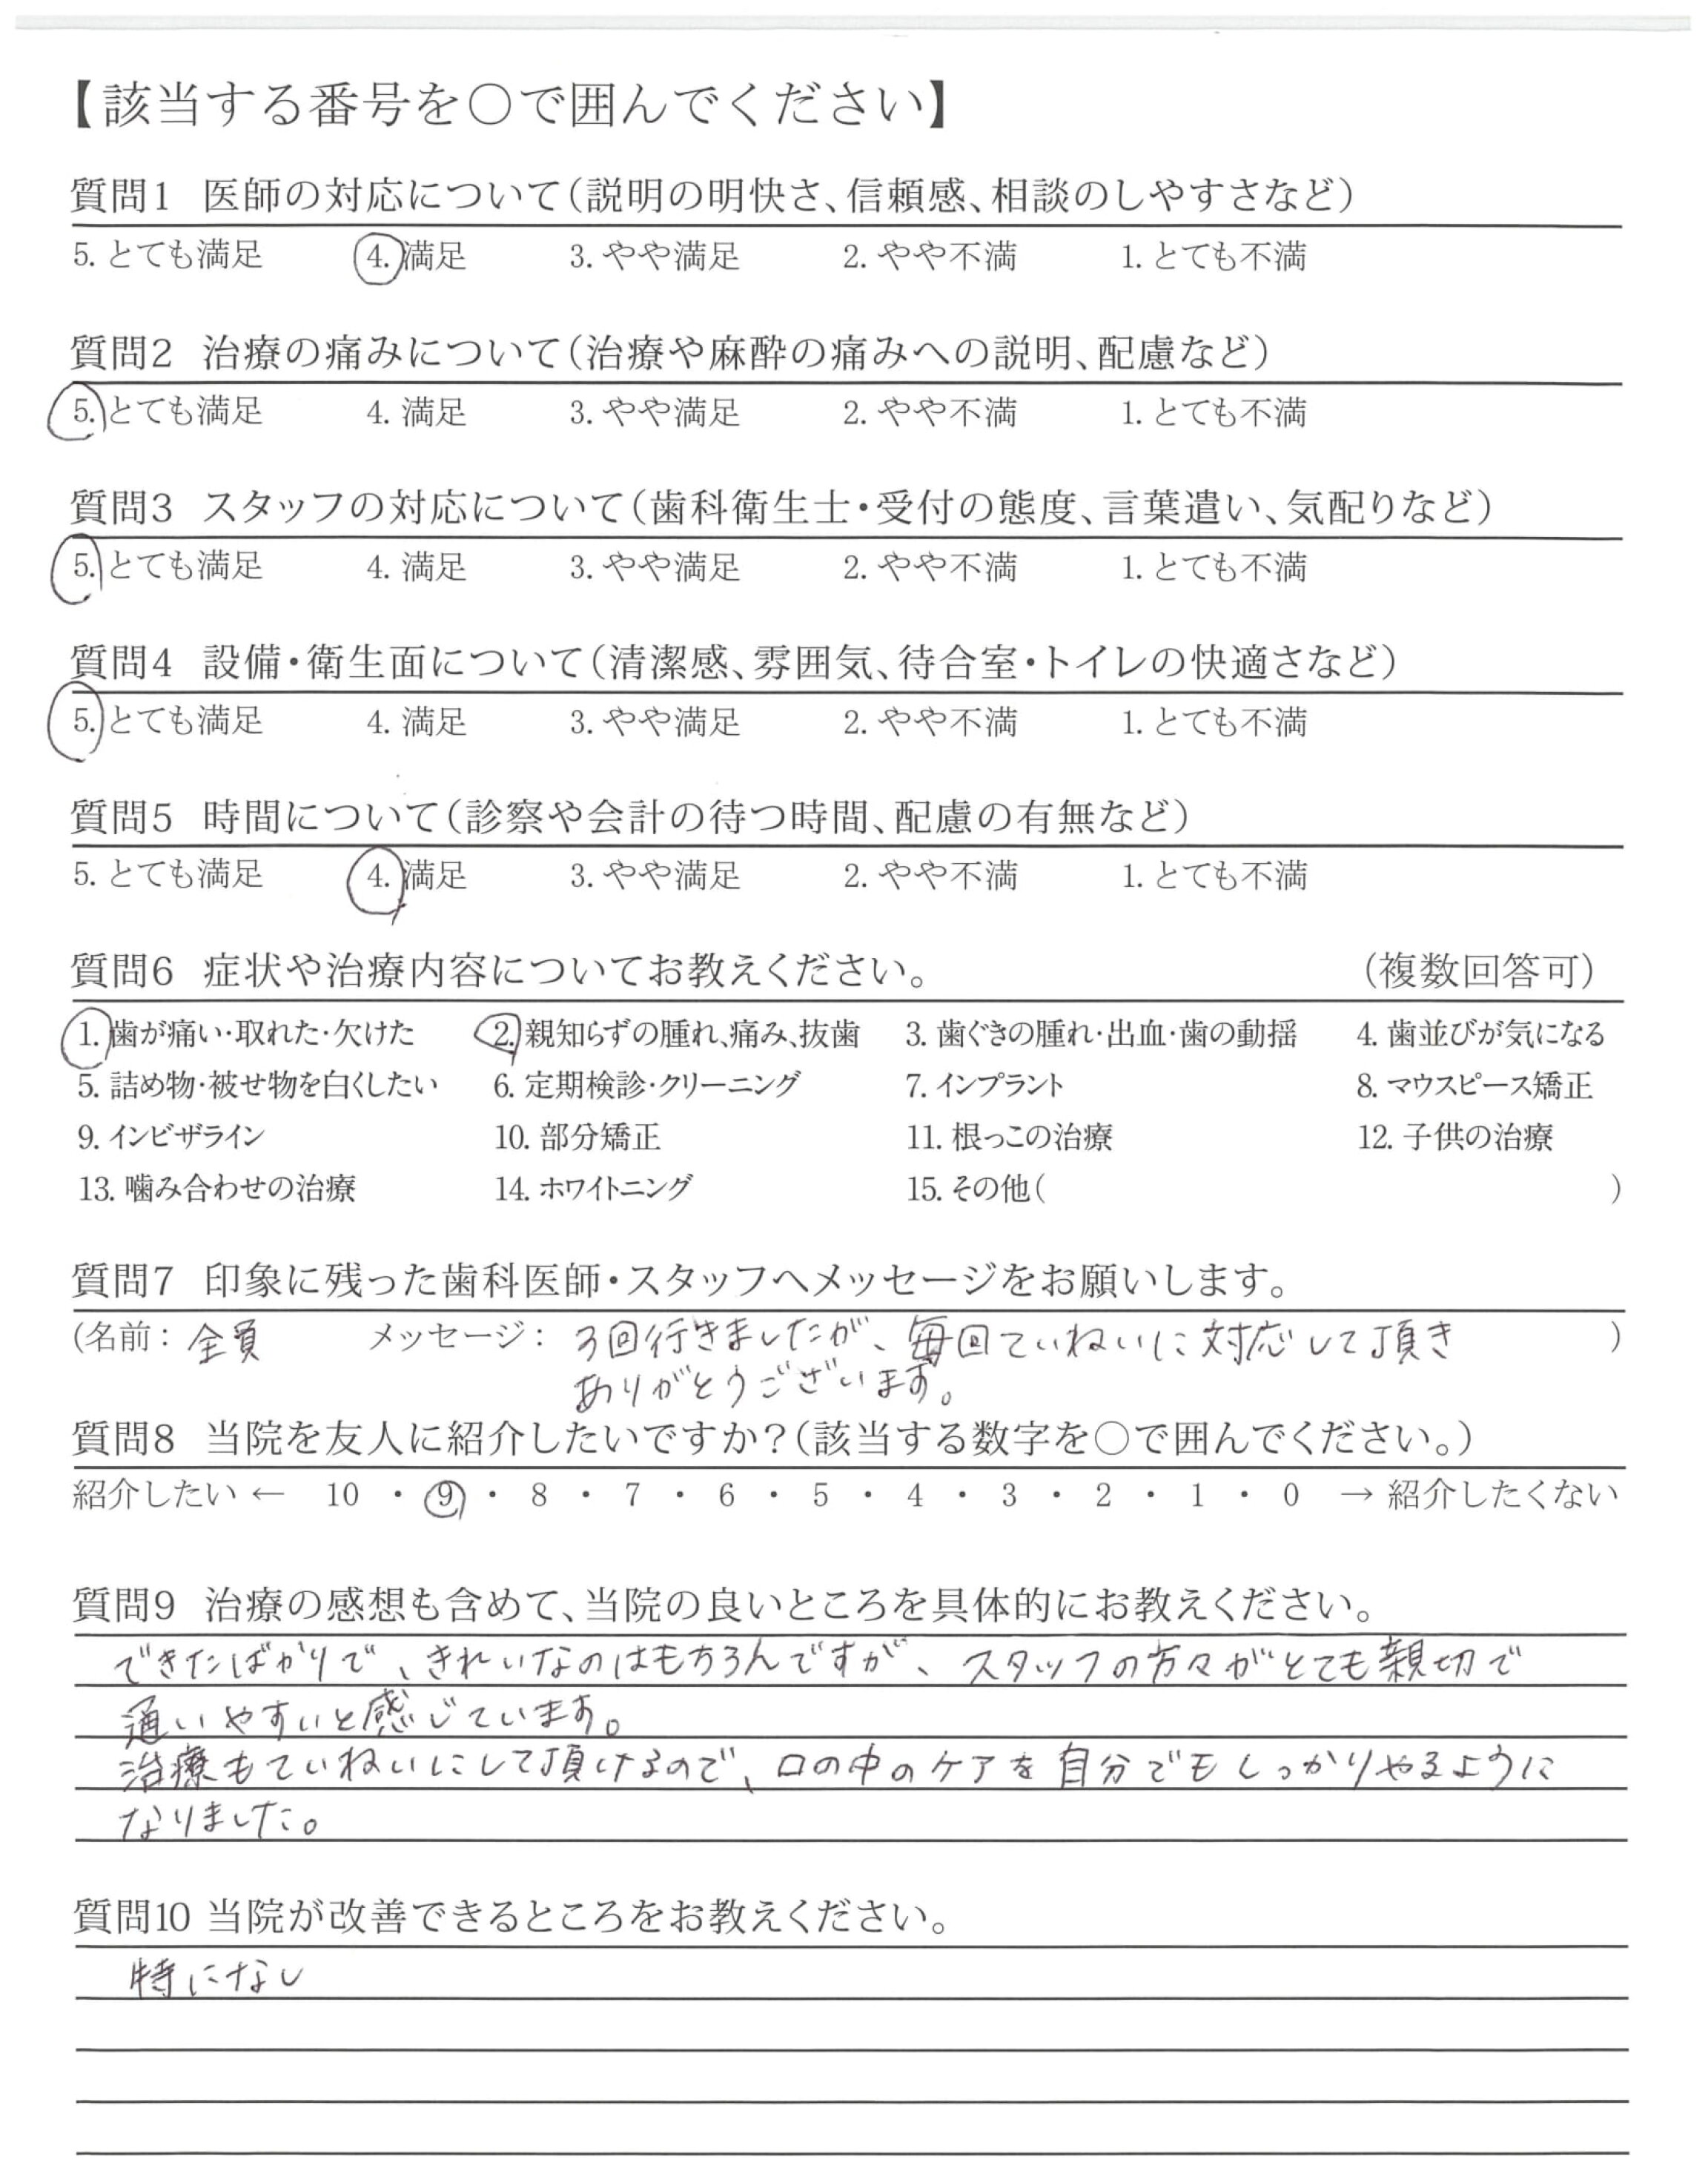 【該当する番号を○で囲んでください】
質問1 医師の対応について（説明の明快さ、信頼感、相談のしやすさなど）
5. とても満足 4. 満足 3. やや満足 2. やや不満 1. とても不満
質問2 治療の痛みについて（治療や麻酔の痛みへの説明、配慮など）
5. とても満足 4. 満足 3. やや満足 2. やや不満 1. とても不満
質問3 スタッフの対応について（歯科衛生士・受付の態度、言葉遣い、気配りなど）
5. とても満足 4. 満足 3. やや満足 2. やや不満 1. とても不満
質問4 設備・衛生面について（清潔感、雰囲気、待合室・トイレの快適さなど）
5. とても満足 4. 満足 3. やや満足 2. やや不満 1. とても不満
質問5 時間について（診察や会計の待つ時間、配慮の有無など）
5. とても満足 4. 満足 3. やや満足 2. やや不満 1. とても不満
質問6 症状や治療内容についてお教えください。 （複数回答可）
1. 歯が痛い・取れた・欠けた 2. 親知らずの腫れ、痛み、抜歯 3. 歯ぐきの腫れ・出血・歯の動揺 4. 歯並びが気になる
5. 詰め物・被せ物を白くしたい 6. 定期検診・クリーニング 7. インプラント 8. マウスピース矯正
9. インビザライン 10. 部分矯正 11. 根っこの治療 12. 子供の治療
13. 噛み合わせの治療 14. ホワイトニング 15. その他（ ）
質問7 印象に残った歯科医師・スタッフへメッセージをお願いします。
（名前： 全員 メッセージ： 3回行きましたが、毎回ていねいに対応して頂き ）
ありがとうございます。
質問8 当院を友人に紹介したいですか？（該当する数字を○で囲んでください。）
紹介したい ← 10 ・ 9 ・ 8 ・ 7 ・ 6 ・ 5 ・ 4 ・ 3 ・ 2 ・ 1 ・ 0 → 紹介したくない
質問9 治療の感想も含めて、当院の良いところを具体的にお教えください。
できたばかりで、きれいなのはもちろんですが、スタッフの方々がとても親切で
通いやすいと感じています。
治療もていねいにして頂けるので、口の中のケアを自分でもしっかりやるように
なりました。
質問10 当院が改善できるところをお教えください。
特になし